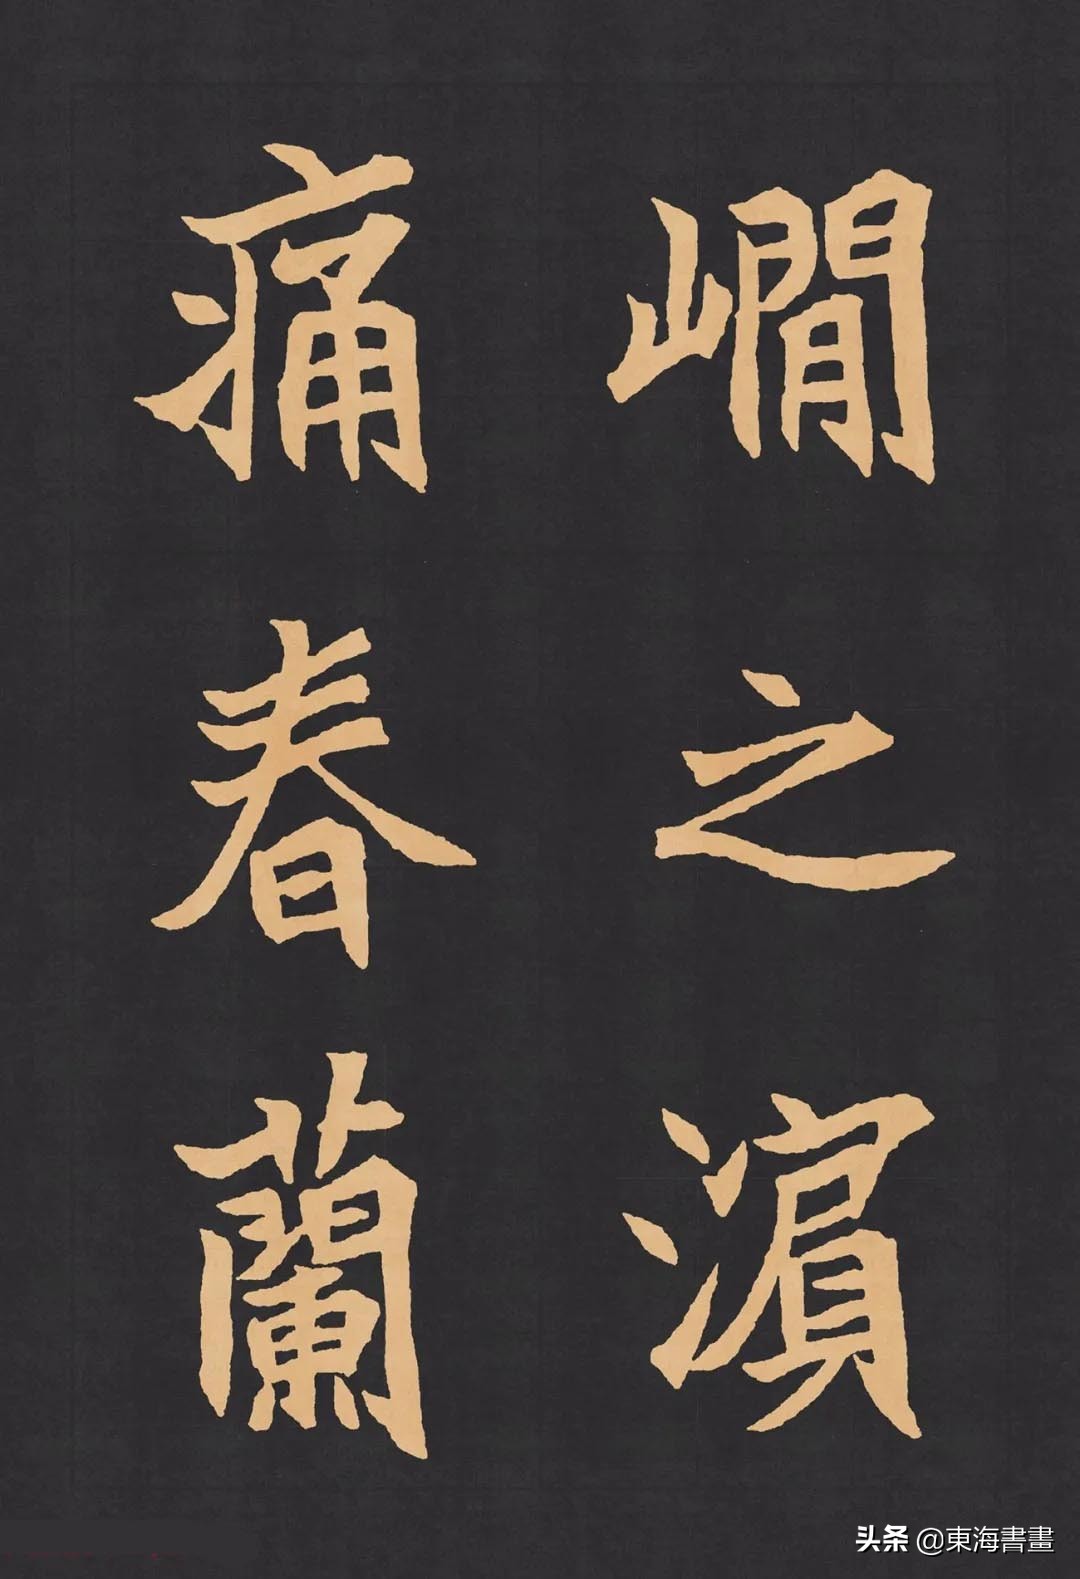 㟁之濵
痛春蘭
头条 @東海書畫